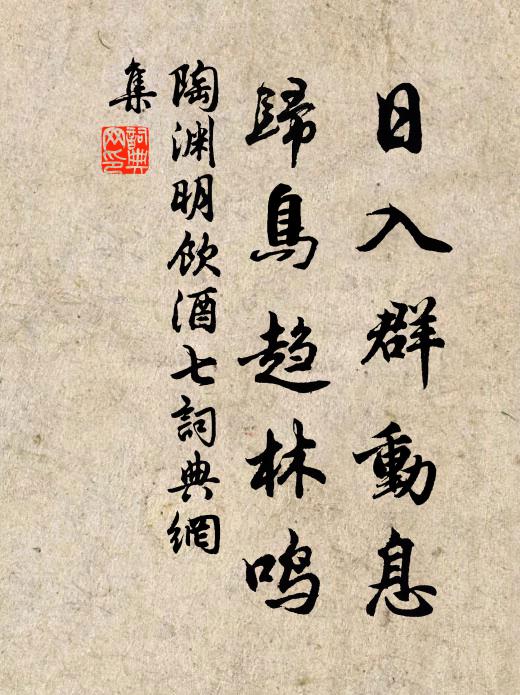 日入群動息
歸鳥趨林鳴
陶渊明飲酒七詞典網
集
詞典网印